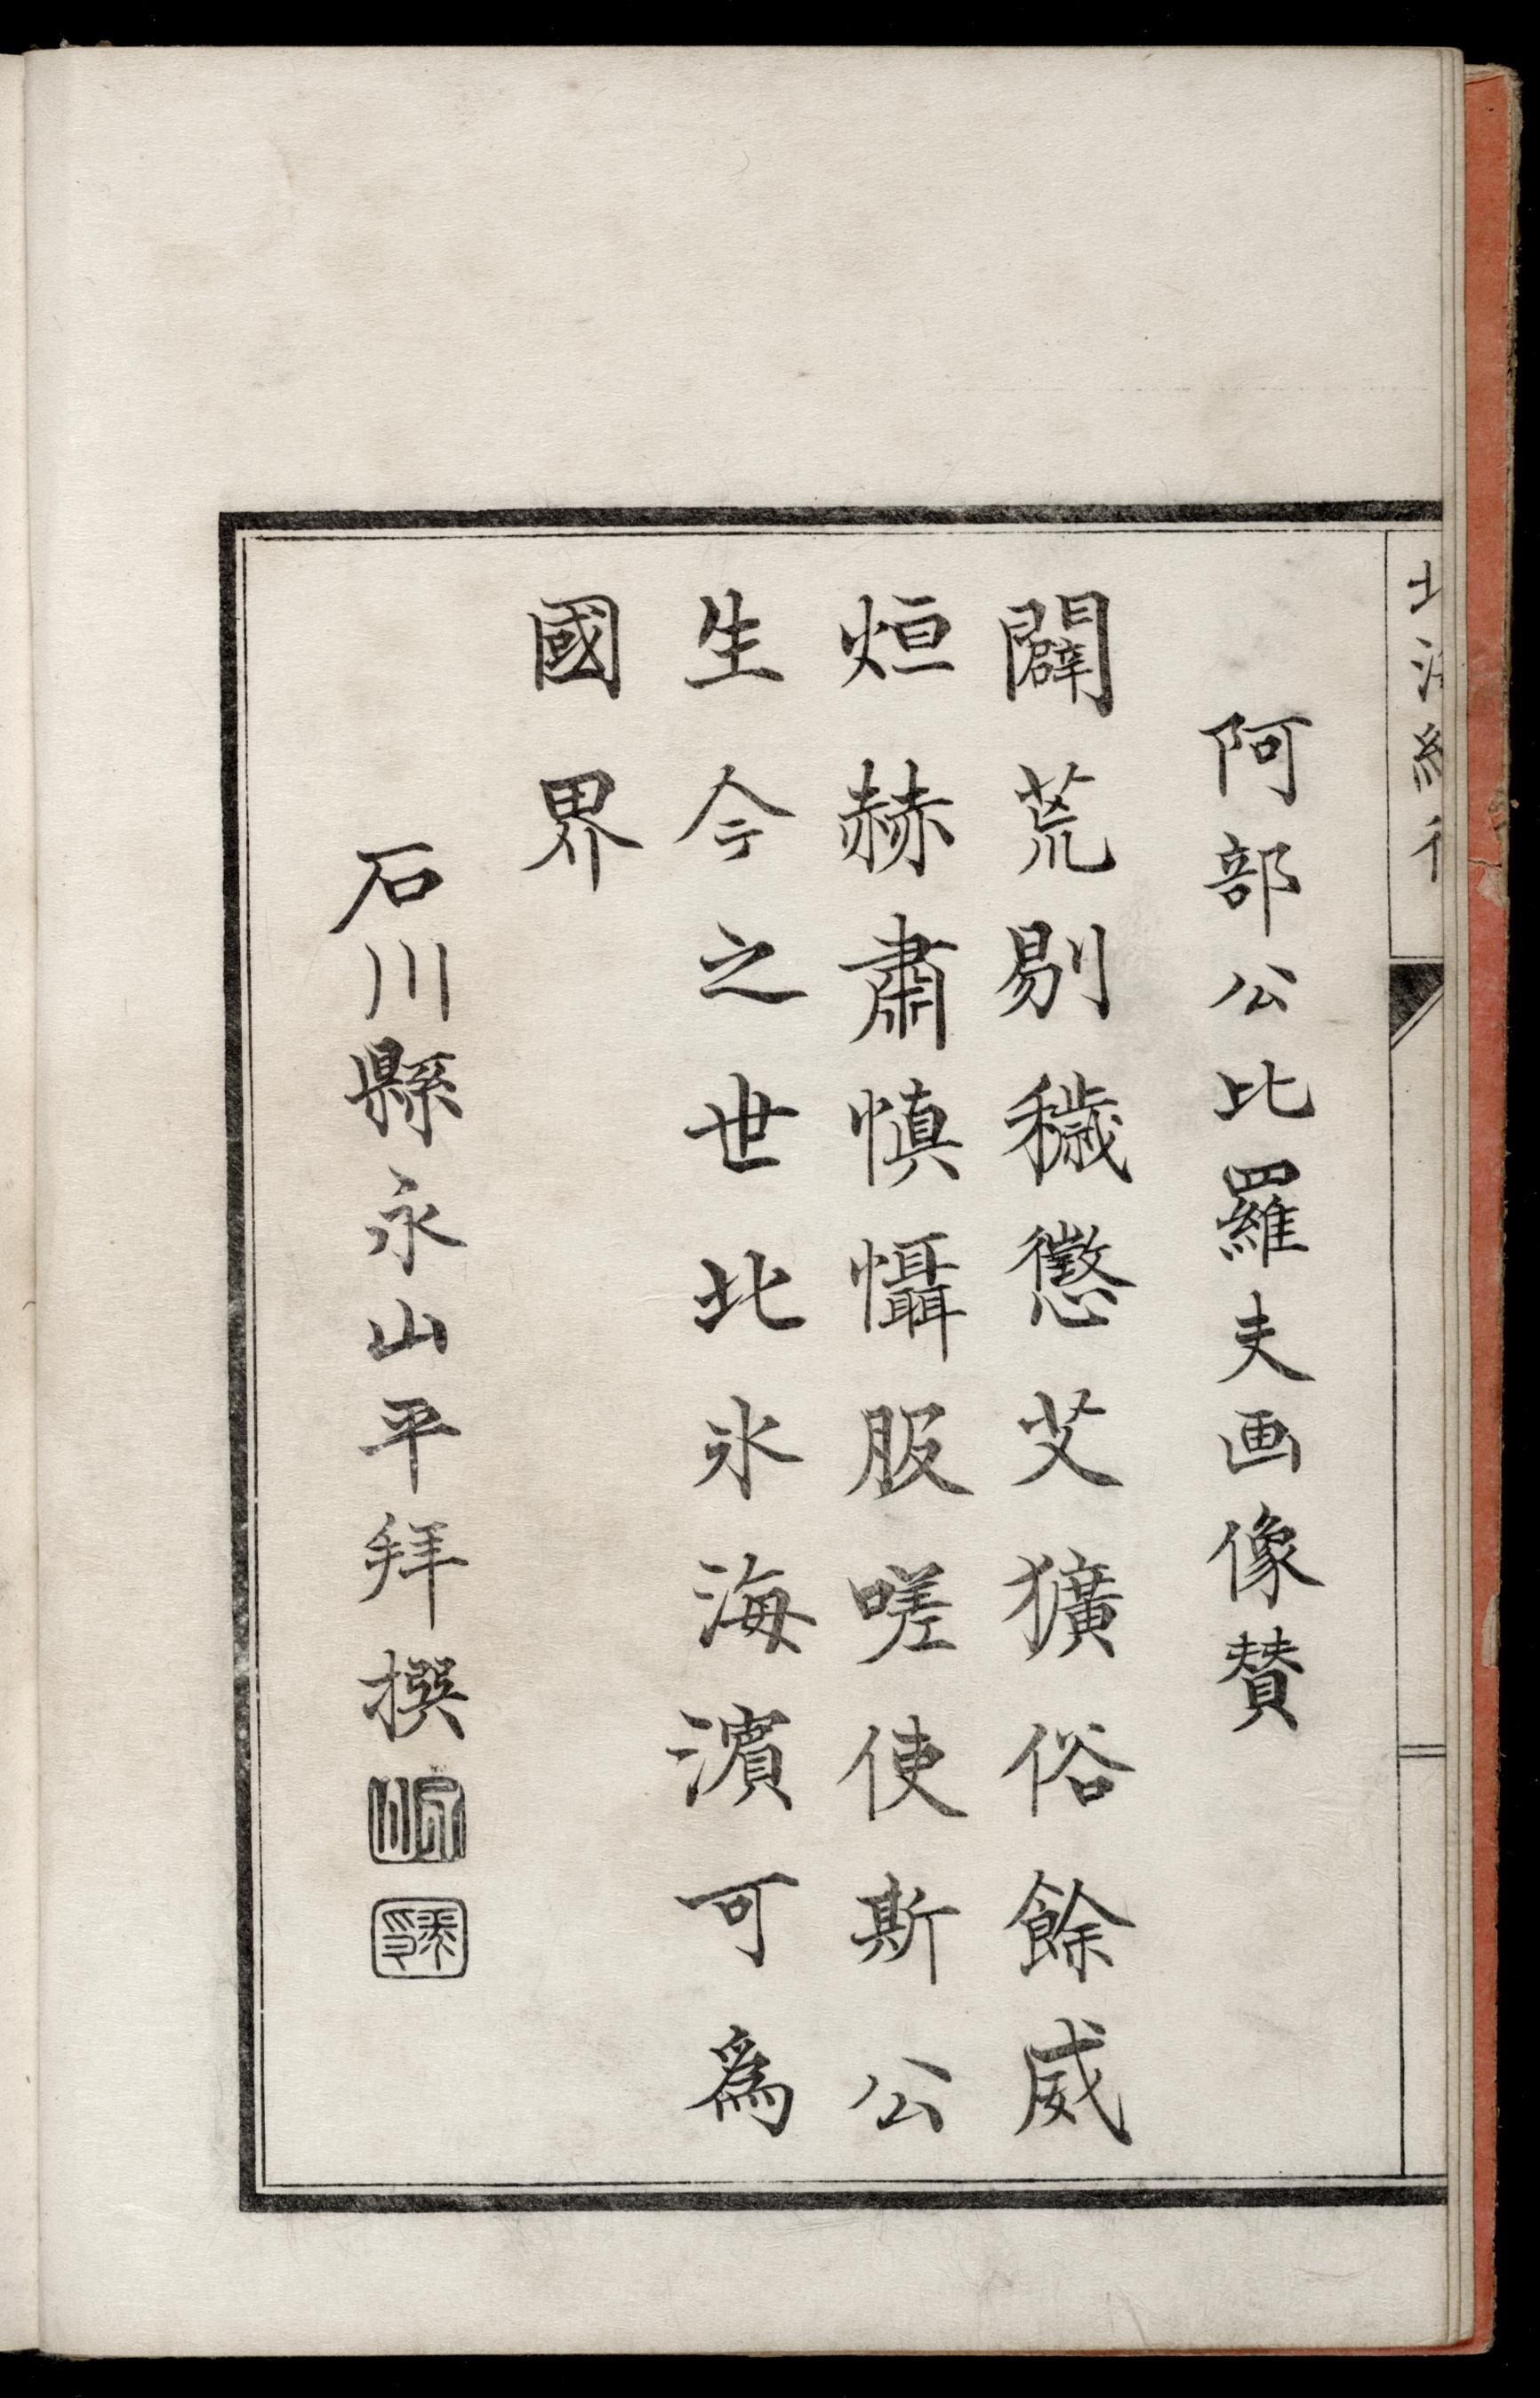 北海紀行
阿部公比羅夫画像賛
闢荒剔穢懲艾獷俗餘威
烜赫肅慎懾服嗟使斯公
生今之世北氷海濵可爲
國界
石川縣永山平拜撰